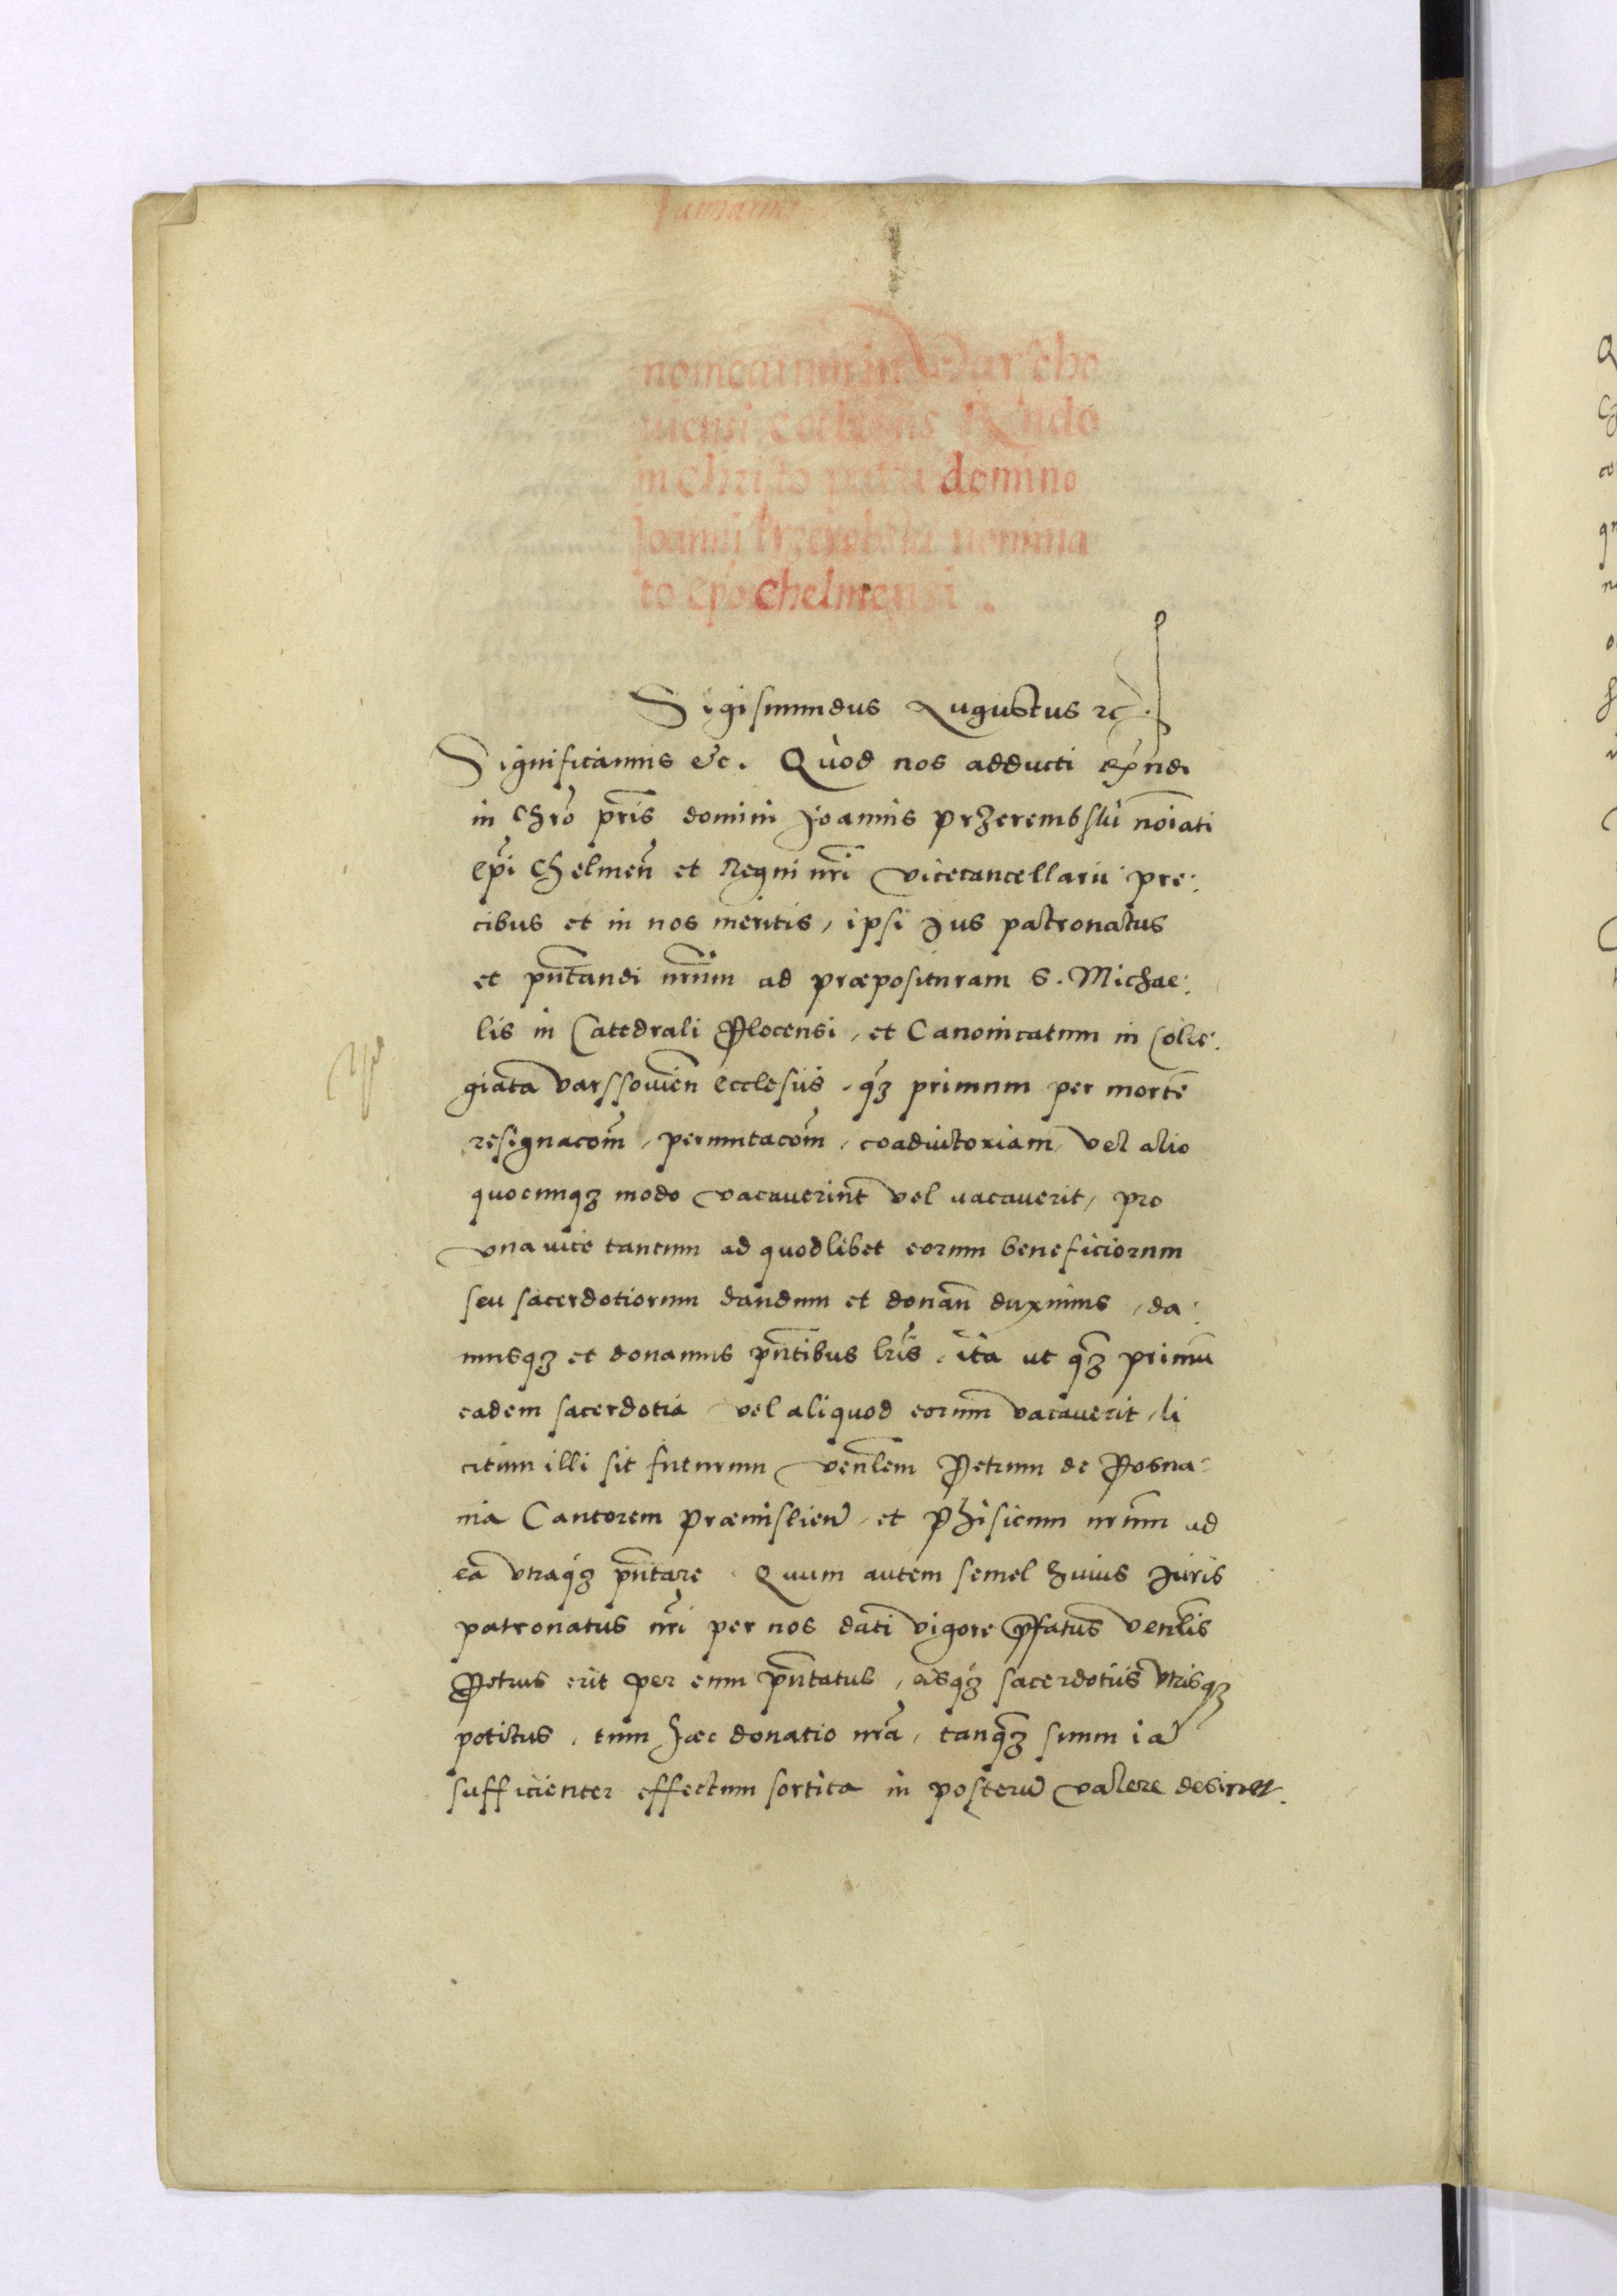 nonicatum in Varscho
viensi ecclesiis Rñdo
in christo patri domino
Joanni Przerebski nomina
to epo chelmensi.
Sigismundus Augustus rc̃.
Significamus &c. Quòd nos adducti Rx̃ndi
in Chr̃o pr̃is domini Joannis Przerembskii noĩati
ep̃i Chelmeñ et Regni nr̃i vicecancellarii pre:
cibus et in nos meritis, ipsi Jus patronatus
et pñtandi nr̃um ad præposituram S. Michae:
lis in Catedrali Plocensi, et Canonicatum in Colle:
giata varssovieñ ecclesiis, q̃ꝫ primum per mortẽ
resignacoм̃, permutacom̃, coadiutoriam, vel alio
quocunqꝫ modo vacaverint vel vacaverit, pro
una vice tantum ad quodlibet eorum beneficiorum
seu sacerdotiorum dandum et donañ duximus, da:
musqꝫ et donamus pñtibus lr̃is, ita ut q̃ꝫ primũ
eadem sacerdotia vel aliquod eorum vacaverit, li
citum illi sit futurum veñlem Petrum de Posna:
nia Cantorem Præmislieñ, et Phisicum nr̃um ad
ea utraqꝫ pñtare. Quum autem semel huius Juris
patronatus nr̃i per nos dati vigore p̃fatus Veñlis
Petrus erit per eum pñtatus, eisqꝫ sacerdotiis utrisqꝫ
potitus, tum hæc donatio nr̃a, tanq̃ꝫ suum iã
sufficienter effectum sortita in posterũ valere desinet.